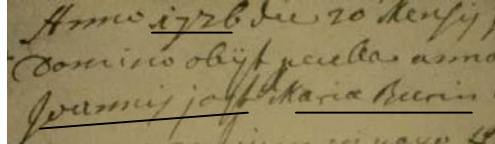 Anno 1726 die 20 Mensis
Domino obijt puella anno
Joannis jost Maria Burin